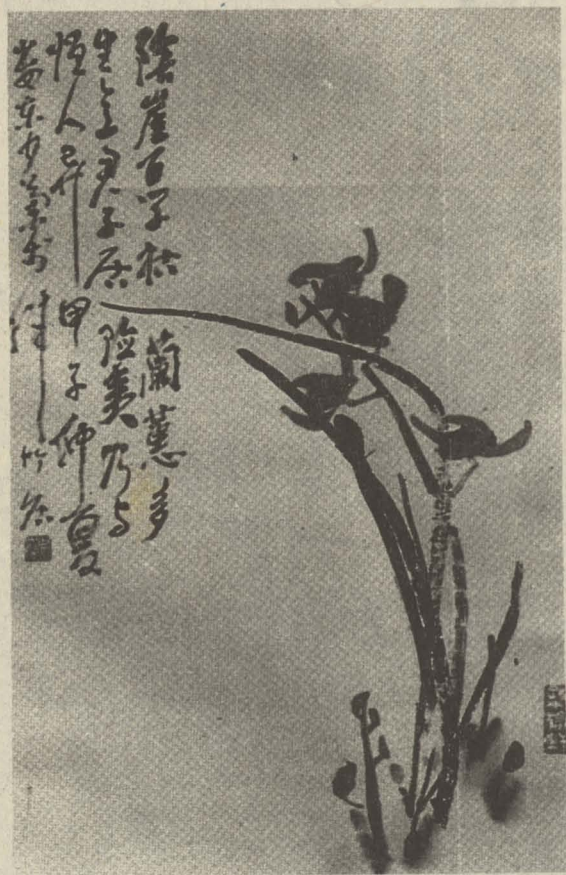 陰崖百草枯 蘭蕙多
生意君子居險夷乃与
恆人异 甲子仲夏
婁东